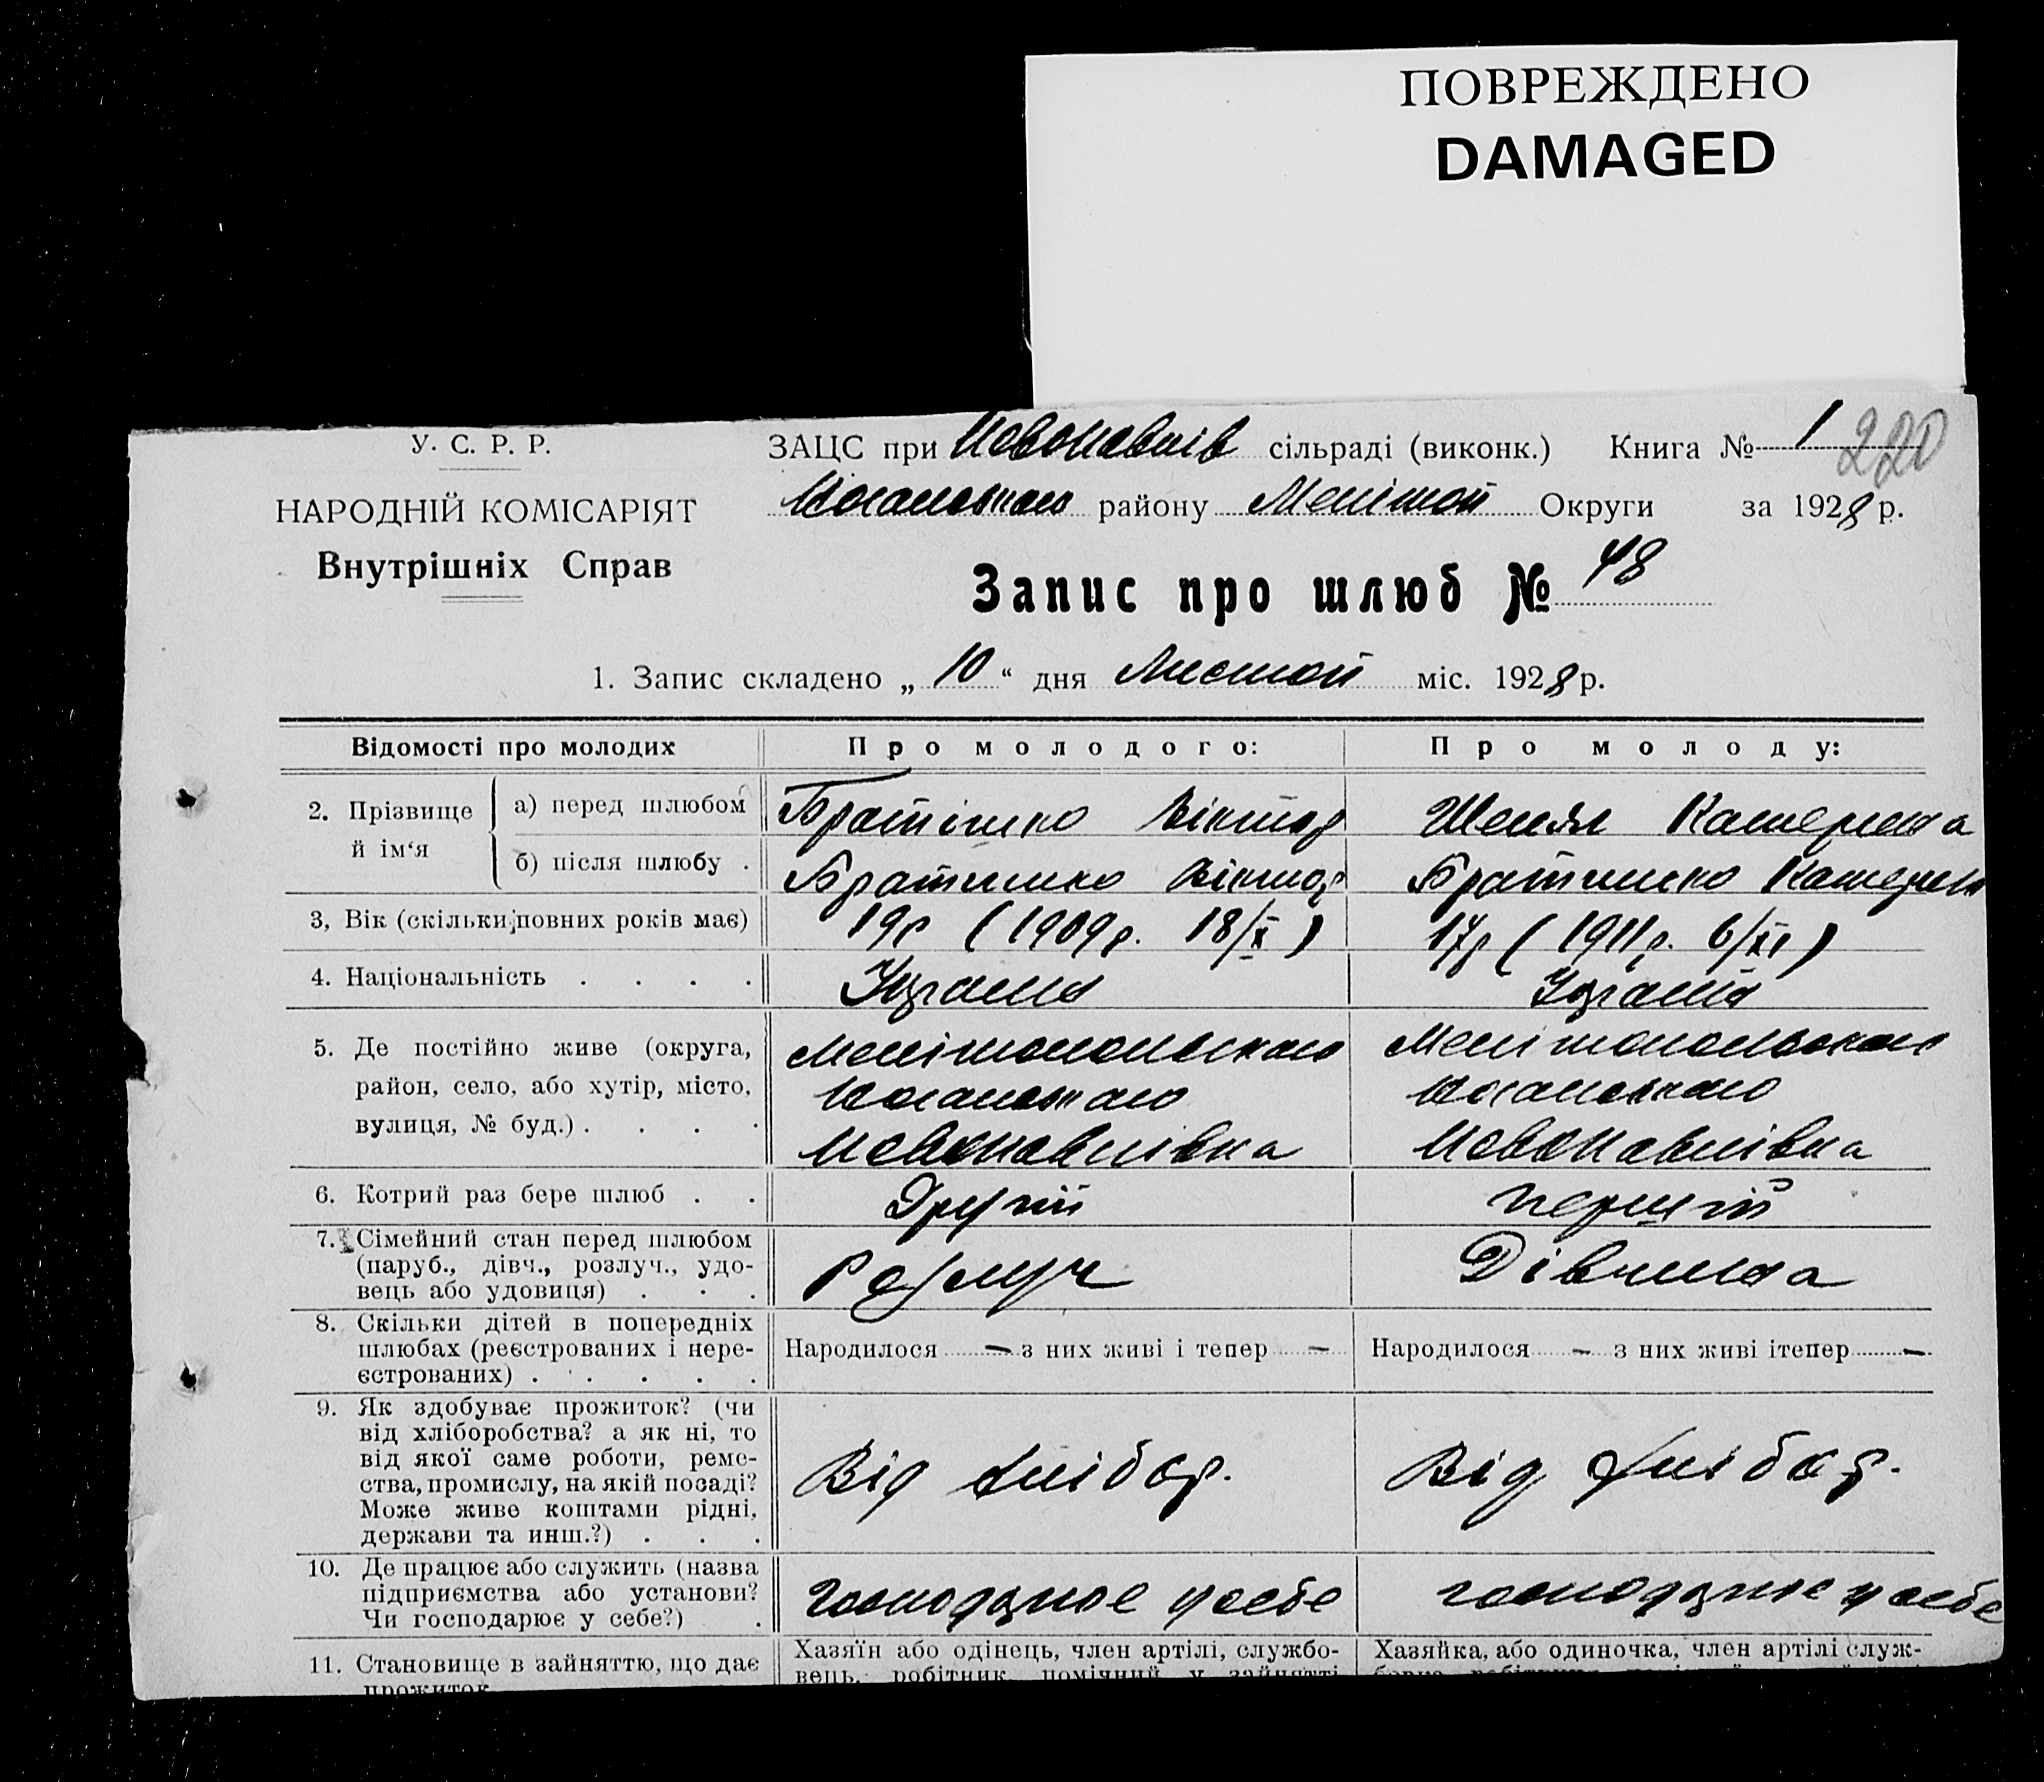 ПОВРЕЖДЕНО
DAMAGED
У. С. Р. Р.
НАРОДНІЙ КОМІСАРІЯТ
Внутрішніх Справ
ЗАЦС при Новопавлів сільраді (виконк.) Книга № 1 220
району Меліт̄ой Округи за 1928 р.
Запис про шлюб № 48
1. Запис складено „ 10 “ дня Листоп міс. 1928 р.
Відомості про молодих Про молодого: Про молоду:
2. Прізвище й ім‘я
а) перед шлюбом Братішко Віктор Катерина
б) після шлюбу . Братишко Віктор Братишко Катерин
3, Вік (скільки повних років має) 19р (1909р. 18/X) 17р (1911р. 6/XI)
4. Національність . . . . Украін Украін
5. Де постійно живе (округа,
район, село, або хутір, місто,
вулиця, № буд.) . . . .
Мелітопольского Мелітопольского
Новопавлівка Новопавлівка
6. Котрий раз бере шлюб . . Другий перший
7. Сімейний стан перед шлюбом
(паруб., дівч., розлуч., удо-
вець або удовиця) . . .
Розлуч Дівчина
8. Скільки дітей в попередніх
шлюбах (реєстрованих і нере-
єстрованих) . . . . . .
Народилося — з них живі і тепер — Народилося — з них живі ітепер —
9. Як здобуває прожиток? (чи
від хліборобства? а як ні, то
від якої саме роботи, реме-
ства, промислу, на якій посаді?
Може живе коштами рідні,
держави та инш.?) . . .
Від хлібор. Від хлібор.
10. Де працює або служить (назва
підприємства або установи?
Чи господарює у себе?) .
господарює у себе господарює у себе
11. Становище в зайняттю, що дає
прожиток
Хазяїн або одінець, член артілі, службо-
вець, робітник, помічний у зайнятті
Хазяйка, або одиночка, член артілі служ-